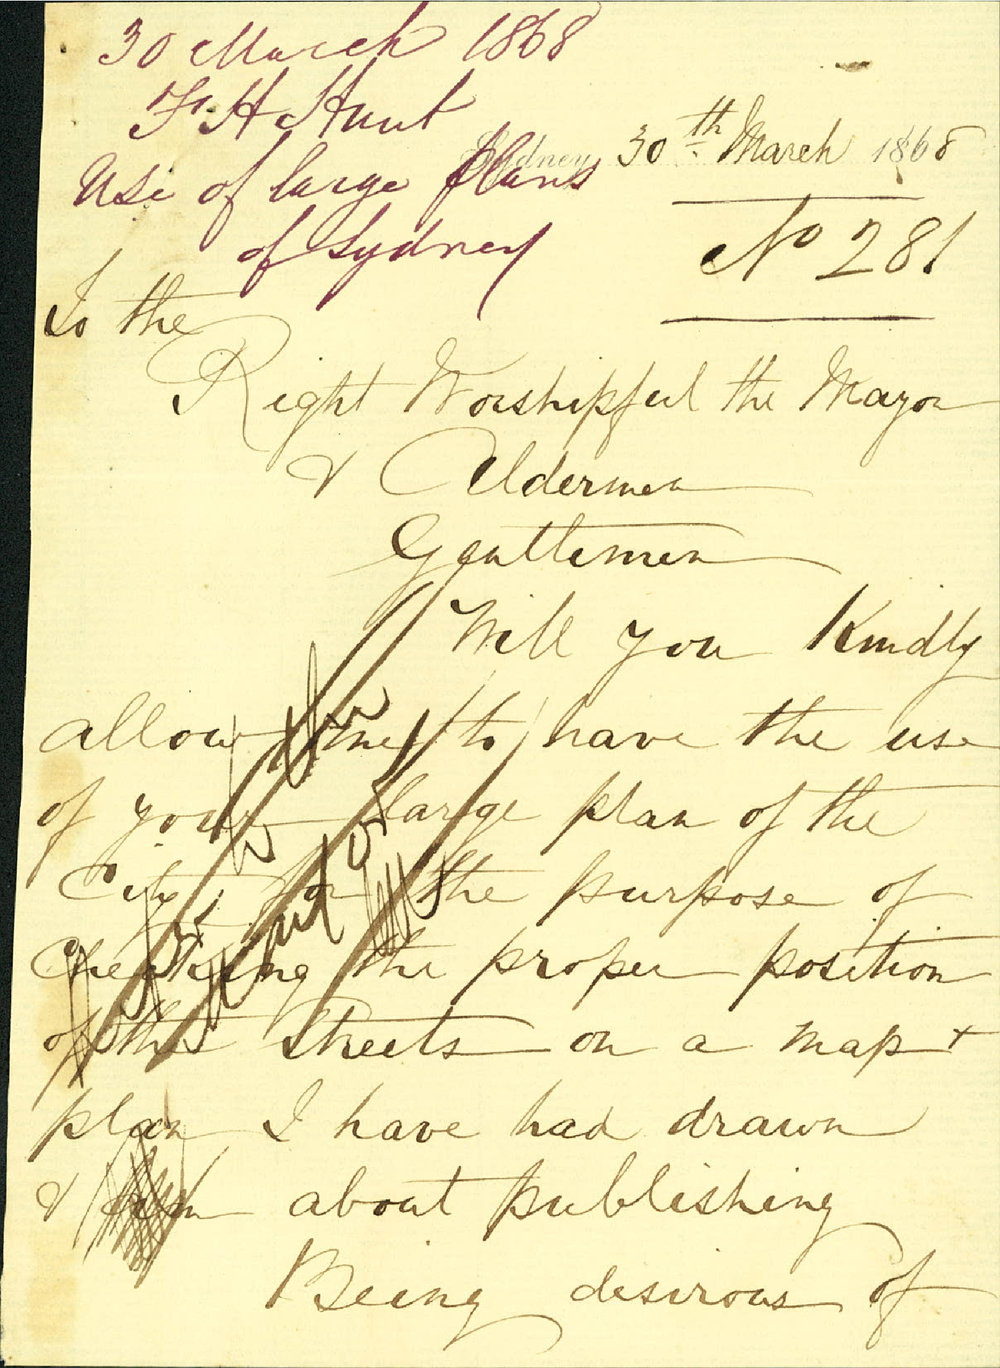 30 March 1868
F. H. Hunt
Use of large plans
of Sydney
Sydney 30th March 1868
No 281
To the
Right Worshipful the Mayor
& Aldermen
Gentlemen
Will you Kindly
allow me to have the use
of your large plan of the
City, for the purpose of
Checking the proper position
of the Streets on a map +
plan I have had drawn
& am about publishing
Being desirous of